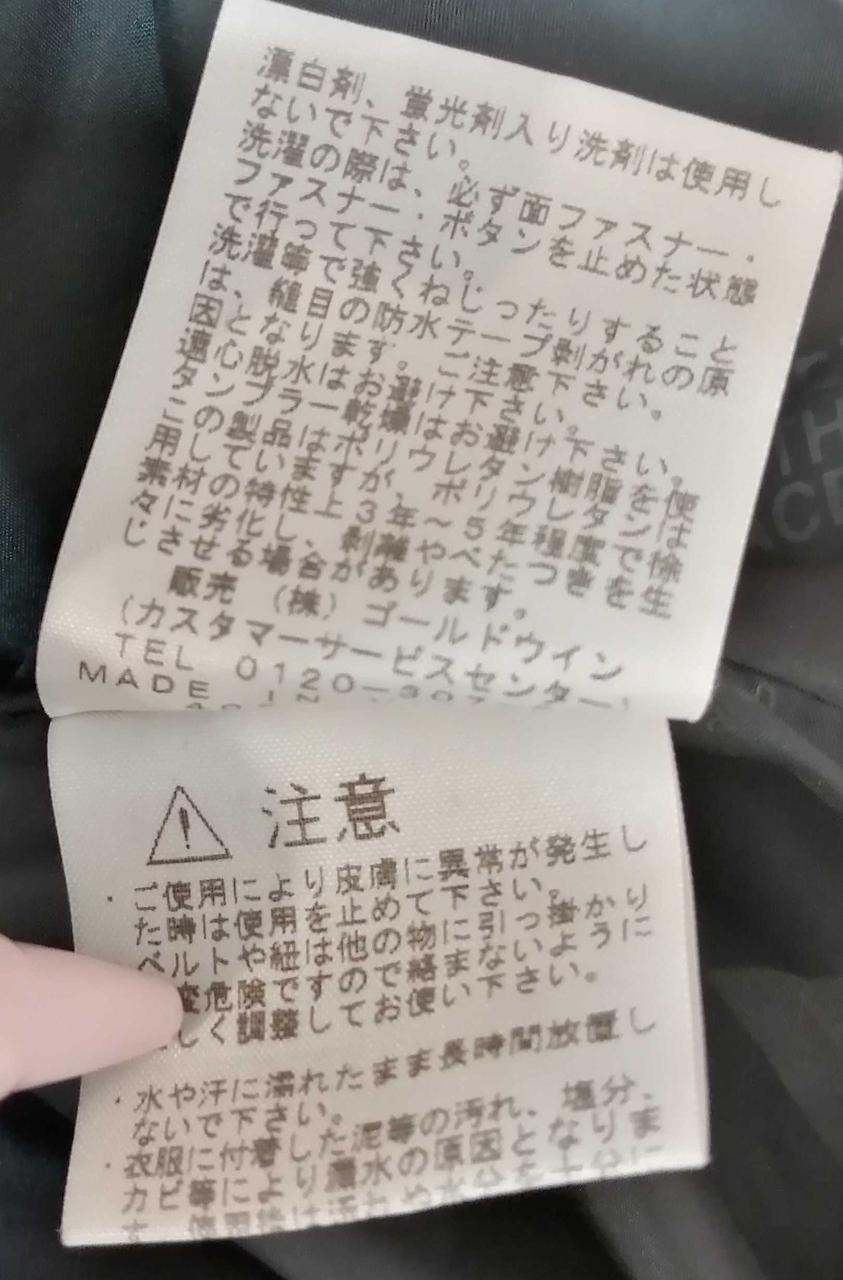 漂白剤、蛍光剤入り洗剤は使用し
ないで下さい。
洗濯の際は、必ず面ファスナー・
ファスナー・ボタンを止めた状態
で行って下さい。
洗濯等で強くねじったりすること
は、縫目の防水テープ剥がれの原
因となります。ご注意下さい。
遠心脱水はお避け下さい。
タンブラー乾燥はお避け下さい。
この製品はポリウレタン樹脂を使
用していますが、ポリウレタンは
素材の特性上3年~5年程度で徐
々に劣化し、剥離やべたつきを生
じさせる場合があります。
販売 (株)ゴールドウイン
(カスタマーサービスセンター)
TEL 0120-
MADE IN
注意
・ご使用により皮膚に異常が発生し
た時は使用を止めて下さい。
ベルトや紐は他の物に引っ掛かり
変危険ですので絡まないように
しく調整してお使い下さい。
・水や汗に濡れたまま長時間放置し
ないで下さい。
・衣服に付着した泥等の汚れ、塩分、
カビ等により漏水の原因となりま
す。使用後は汚れや水分を十分に
TH
ACE